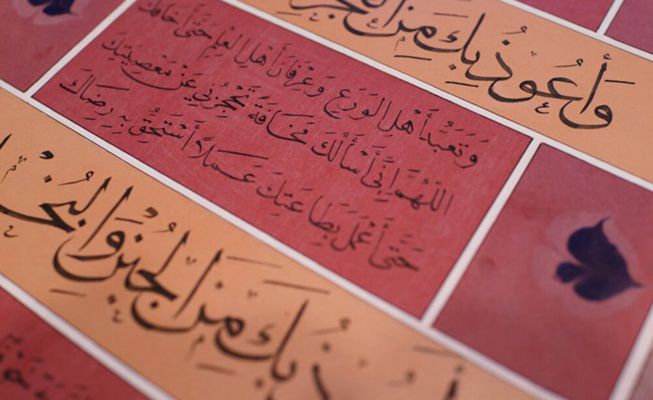 وَأَعُوذُ بِكَ مِنَ العَجْزِ
وَتَعَبُّدَ أَهْلِ الوَرَعِ وَعِرْفَانَ أَهْلِ العِلْمِ حَتَّى أَخَافَكَ
اللَّهُمَّ إِنِّي أَسْأَلُكَ مَخَافَةً تَحْجُزُنِي عَنْ مَعْصِيَتِكَ
حَتَّى أَعْمَلَ بِطَاعَتِكَ عَمَلاً أَسْتَحِقُّ بِهِ رِضَاكَ
بِكَ مِنَ الجُبْنِ وَالبُخْلِ